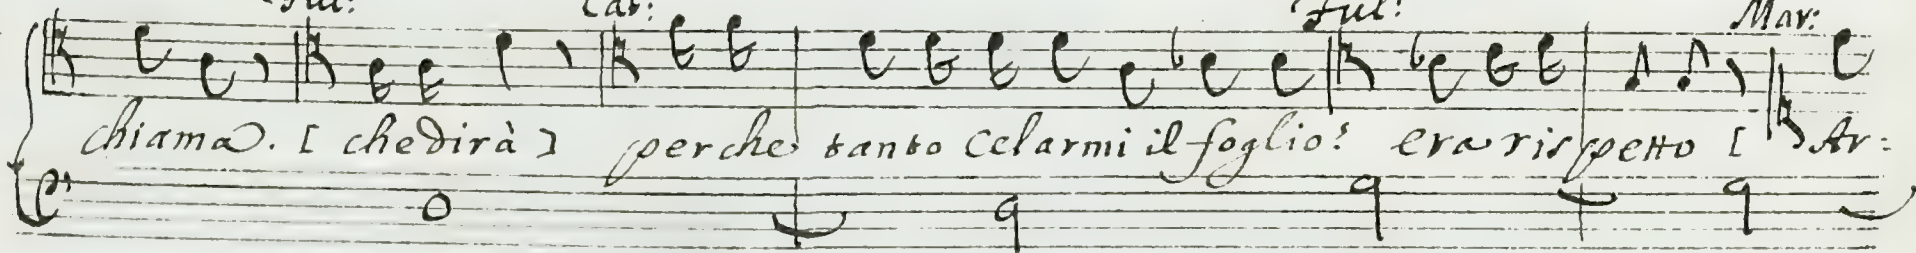 Ful: Cat: Ful: Mar:
chiama. [ che dirà ] perche tanto Celarmi il foglio? era rispetto [ Ar: